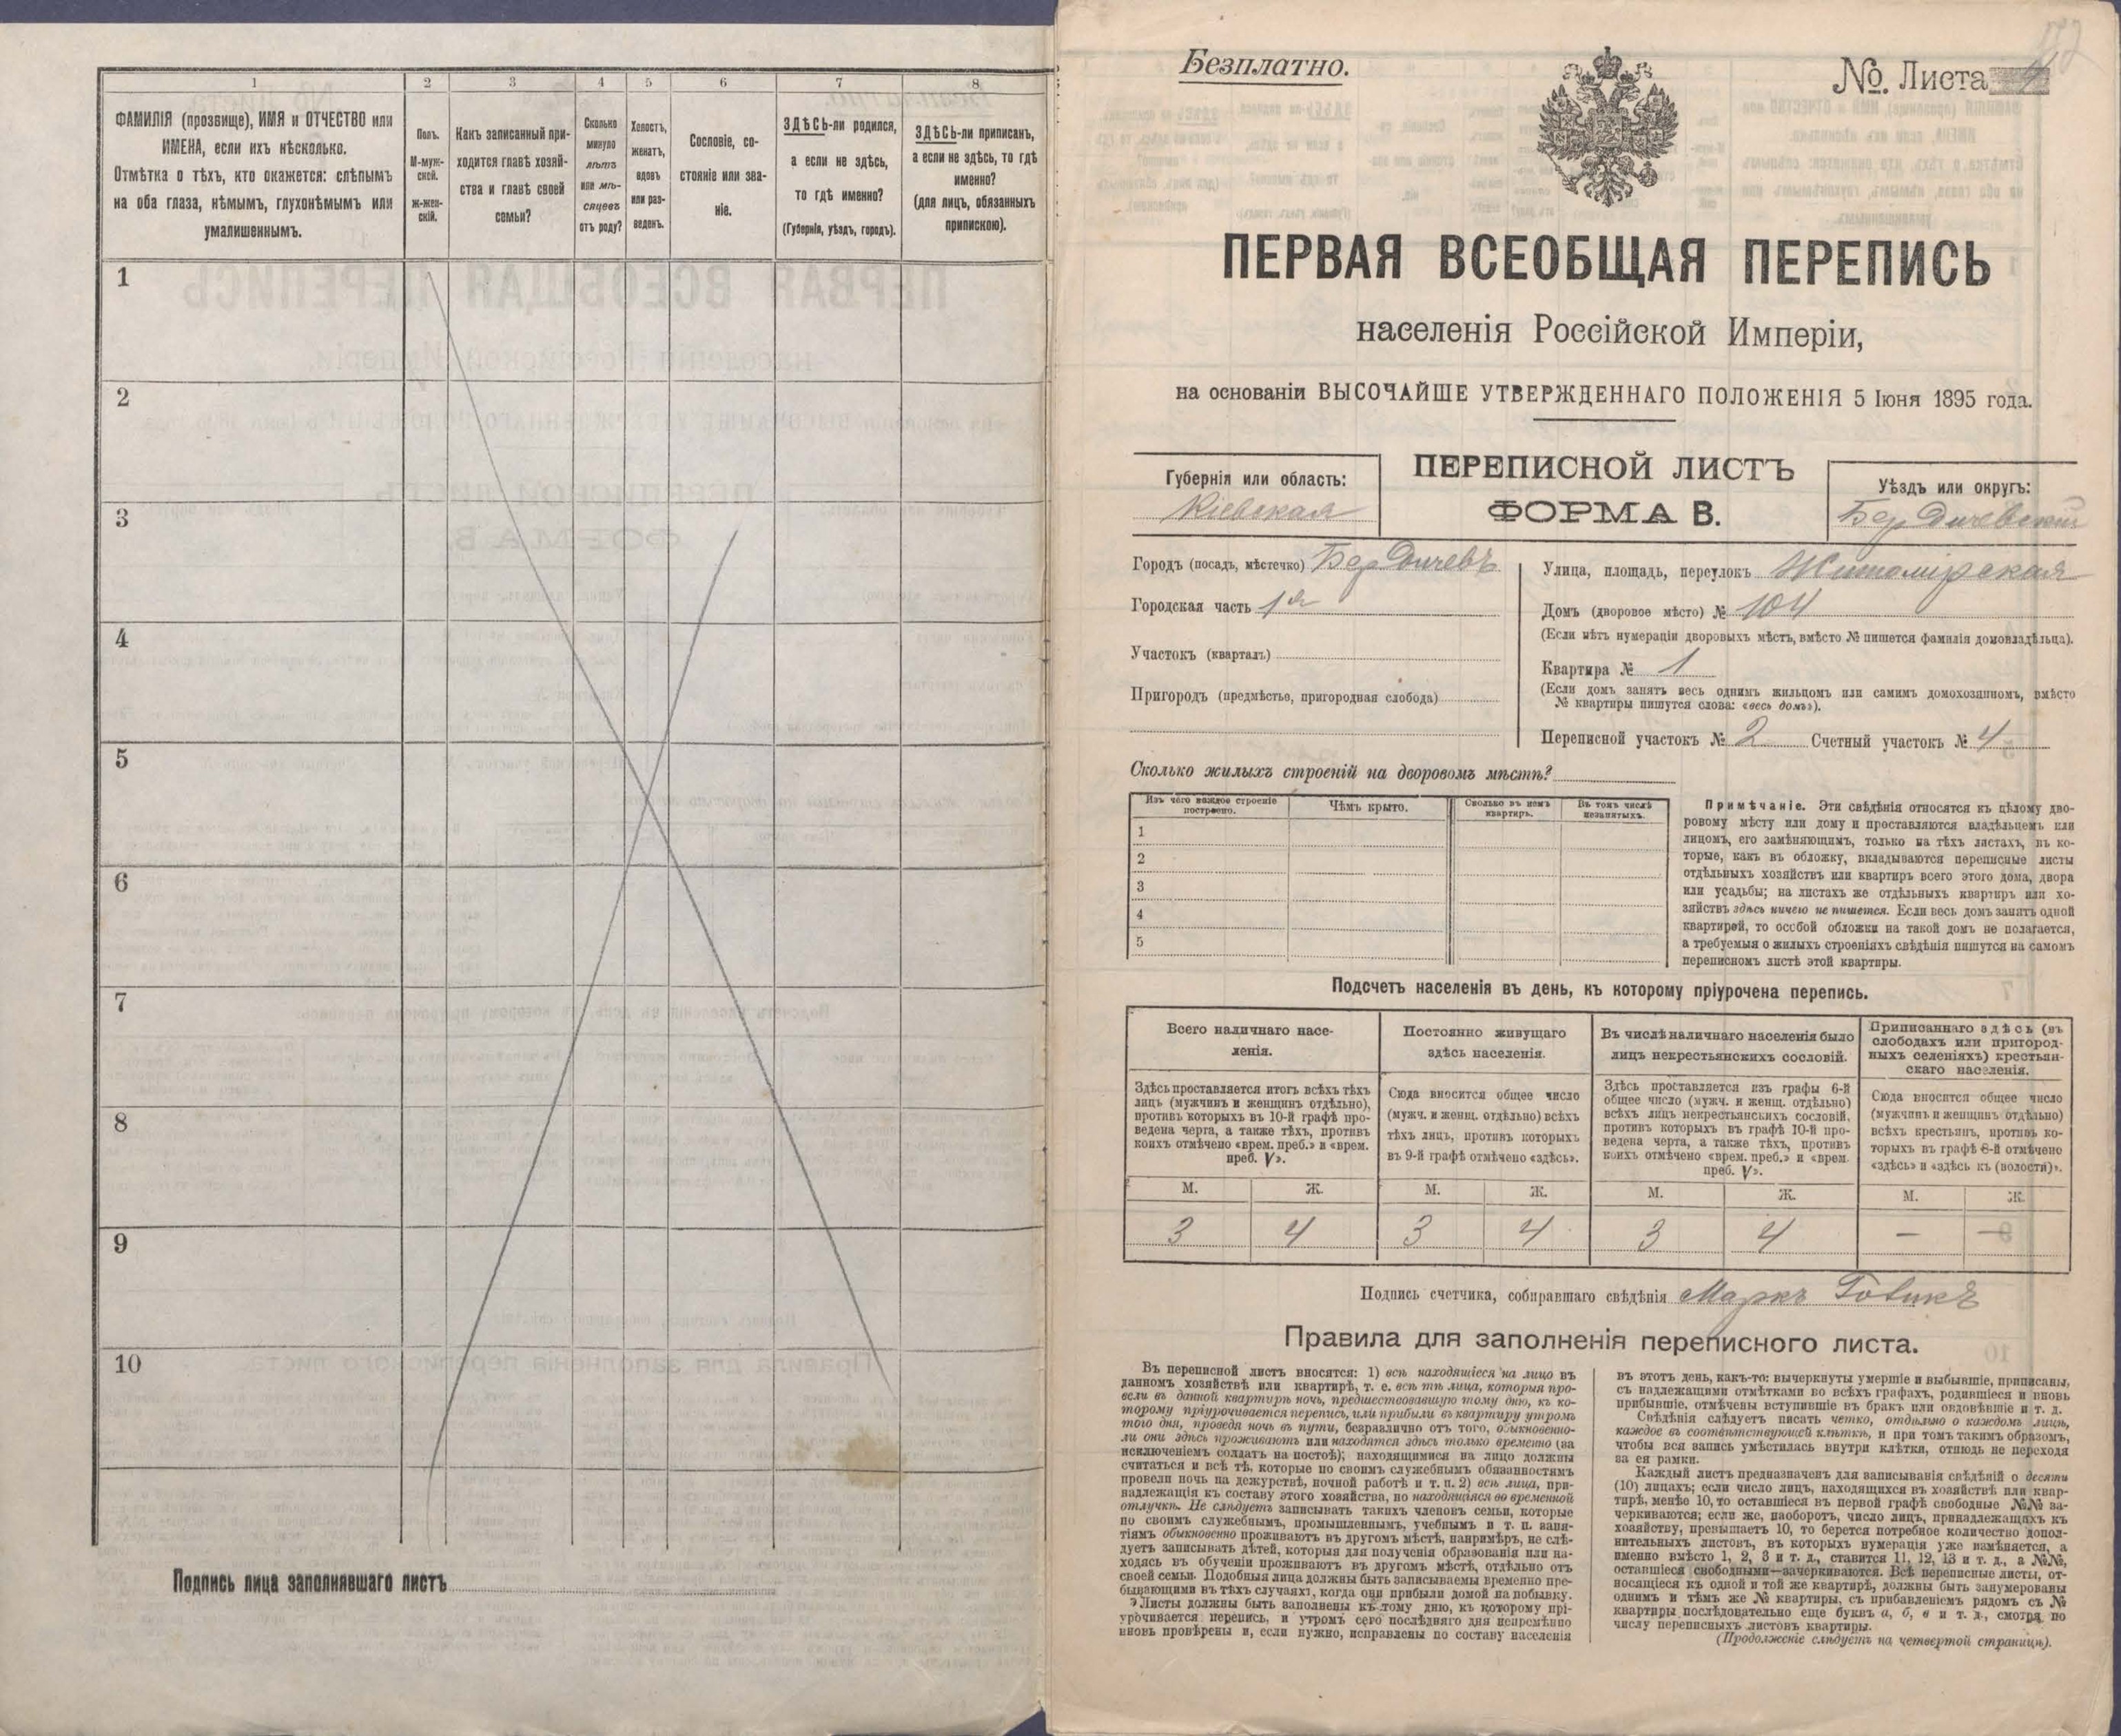 1
2
3
4
5
6
7
8
ФАМИЛІЯ (прозвище), ИМЯ и ОТЧЕСТВО или
ИМЕНА, если ихъ нѣсколько.
Отмѣтка о тѣхъ, кто окажется: слѣпымъ
на оба глаза, нѣмымъ, глухонѣмымъ или
умалишеннымъ.
Полъ.
М-муж-
ской.
ж-жен-
скій.
Какъ записанный при-
ходится главѣ хозяй-
ства и главѣ своей
семьи?
Сколько
минуло
лѣтъ
или мѣ-
сяцевъ
отъ роду?
Холостъ,
женатъ,
вдовъ
или раз-
веденъ.
Сословіе, со-
стояніе или зва-
ніе.
ЗДѢСЬ-ли родился,
а если не здѣсь,
то гдѣ именно?
(Губернія, уѣздъ, городъ).
ЗДѢСЬ-ли приписанъ,
а если не здѣсь, то гдѣ
именно?
(для лицъ, обязанныхъ
припискою).
1
2
3
4
5
6
7
8
9
10
Подпись лица заполнявшаго листъ
Безплатно.
№. Листа
ПЕРВАЯ ВСЕОБЩАЯ ПЕРЕПИСЬ
населенія Россійской Имперіи,
на основаніи ВЫСОЧАЙШЕ УТВЕРЖДЕННАГО ПОЛОЖЕНІЯ 5 Іюня 1895 года.
Губернія или область:
Кіевская
ПЕРЕПИСНОЙ ЛИСТЪ
ФОРМА В.
Уѣздъ или округъ:
Бердичевскій
Городъ (посадъ, мѣстечко) Бердичевъ
Городская часть 1я
Участокъ (кварталъ)
Пригородъ (предмѣстье, пригородная слобода)
Улица, площадь, переулокъ Житомірская
Домъ (дворовое мѣсто) № 104
(Если нѣтъ нумераціи дворовыхъ мѣстъ, вмѣсто № пишется фамилія домовладѣльца).
Квартира № 1
(Если домъ занятъ весь однимъ жильцомъ или самимъ домохозяиномъ, вмѣсто
№ квартиры пишутся слова: «весь домъ»).
Переписной участокъ № 2 Счетный участокъ № 4
Сколько жилыхъ строеній на дворовомъ мѣстѣ?
Изъ чего каждое строеніе
построено.
Чѣмъ крыто.
Сколько въ немъ
квартиръ.
Въ томъ числѣ
незанятыхъ.
1
2
3
4
5
Примѣчаніе. Эти свѣдѣнія относятся къ цѣлому дво-
ровому мѣсту или дому и проставляются владѣльцемъ или
лицомъ, его замѣняющимъ, только на тѣхъ листахъ, въ ко-
торые, какъ въ обложку, вкладываются переписные листы
отдѣльныхъ хозяйствъ или квартиръ всего этого дома, двора
или усадьбы; на листахъ же отдѣльныхъ квартиръ или хо-
зяйствъ здѣсь ничего не пишется. Если весь домъ занятъ одной
квартирой, то особой обложки на такой домъ не полагается,
а требуемыя о жилыхъ строеніяхъ свѣдѣнія пишутся на самомъ
переписномъ листѣ этой квартиры.
Подсчетъ населенія въ день, къ которому пріурочена перепись.
Всего наличнаго насе-
ленія.
Постоянно живущаго
здѣсь населенія.
Въ числѣ наличнаго населенія было
лицъ некрестьянскихъ сословій.
Приписаннаго здѣсь (въ
слободахъ или пригород-
ныхъ селеніяхъ) крестьян-
скаго населенія.
Здѣсь проставляется итогъ всѣхъ тѣхъ
лицъ (мужчинъ и женщинъ отдѣльно),
противъ которыхъ въ 10-й графѣ про-
ведена черта, а также тѣхъ, противъ
коихъ отмѣчено «врем. преб.» и «врем.
преб. V».
Сюда вносится общее число
(мужч. и женщ. отдѣльно) всѣхъ
тѣхъ лицъ, противъ которыхъ
въ 9-й графѣ отмѣчено «здѣсь».
Здѣсь проставляется изъ графы 6-й
общее число (мужч. и женщ. отдѣльно)
всѣхъ лицъ некрестьянскихъ сословій,
противъ которыхъ въ графѣ 10-й про-
ведена черта, а также тѣхъ, противъ
коихъ отмѣчено «врем. преб.» и «врем.
преб. V».
Сюда вносится общее число
(мужчинъ и женщинъ отдѣльно)
всѣхъ крестьянъ, противъ ко-
торыхъ въ графѣ 8-й отмѣчено
«здѣсь» и «здѣсь къ (волости)».
М. Ж. М. Ж. М. Ж. М. Ж.
3 4 3 4 3 4 — —
Подпись счетчика, собиравшаго свѣдѣнія Маркъ Говикъ
Правила для заполненія переписного листа.
Въ переписной листъ вносятся: 1) всѣ находящіеся на лицо въ
данномъ хозяйствѣ или квартирѣ, т. е. всѣ тѣ лица, которыя про-
вели въ данной квартирѣ ночь, предшествовавшую тому дню, къ ко-
торому пріурочивается перепись, или прибыли въ квартиру утромъ
того дня, проведя ночь въ пути, безразлично отъ того, обыкновенно-
ли они здѣсь проживаютъ или находятся здѣсь только временно (за
исключеніемъ солдатъ на постоѣ); находящимися на лицо должны
считаться и всѣ тѣ, которые по своимъ служебнымъ обязанностямъ
провели ночь на дежурствѣ, ночной работѣ и т. п. 2) всѣ лица, при-
надлежащія къ составу этого хозяйства, но находящіяся во временной
отлучкѣ. Не слѣдуетъ записывать такихъ членовъ семьи, которые
по своимъ служебнымъ, промышленнымъ, учебнымъ и т. п. заня-
тіямъ обыкновенно проживаютъ въ другомъ мѣстѣ, напримѣръ, не слѣ-
дуетъ записывать дѣтей, которыя для полученія образованія или на-
ходясь въ обученіи проживаютъ въ другомъ мѣстѣ, отдѣльно отъ
своей семьи. Подобныя лица должны быть записываемы временно пре-
бывающими въ тѣхъ случаяхъ, когда они прибыли домой на побывку.
Листы должны быть заполнены къ тому дню, къ которому прі-
урочивается перепись, и утромъ сего послѣдняго дня непремѣнно
вновь провѣрены и, если нужно, исправлены по составу населенія
въ этотъ день, какъ-то: вычеркнуты умершіе и выбывшіе, приписаны,
съ надлежащими отмѣтками во всѣхъ графахъ, родившіеся и вновь
прибывшіе, отмѣчены вступившіе въ бракъ или овдовѣвшіе и т. д.
Свѣдѣнія слѣдуетъ писать четко, отдѣльно о каждомъ лицѣ,
каждое въ соотвѣтствующей клѣткѣ, и при томъ такимъ образомъ,
чтобы вся запись умѣстилась внутри клѣтки, отнюдь не переходя
за ея рамки.
Каждый листъ предназначенъ для записыванія свѣдѣній о десяти
(10) лицахъ; если число лицъ, находящихся въ хозяйствѣ или квар-
тирѣ, менѣе 10, то оставшіеся въ первой графѣ свободные №№ за-
черкиваются; если же, наоборотъ, число лицъ, принадлежащихъ къ
хозяйству, превышаетъ 10, то берется потребное количество допол-
нительныхъ листовъ, въ которыхъ нумерація уже измѣняется, а
именно вмѣсто 1, 2, 3 и т. д., ставится 11, 12, 13 и т. д., а №№,
оставшіеся свободными—зачеркиваются. Всѣ переписные листы, от-
носящіеся къ одной и той же квартирѣ, должны быть занумерованы
однимъ и тѣмъ же № квартиры, съ прибавленіемъ рядомъ съ №
квартиры послѣдовательно еще буквъ а, б, в и т. д., смотря по
числу переписныхъ листовъ квартиры.
(Продолженіе слѣдуетъ на четвертой страницѣ).